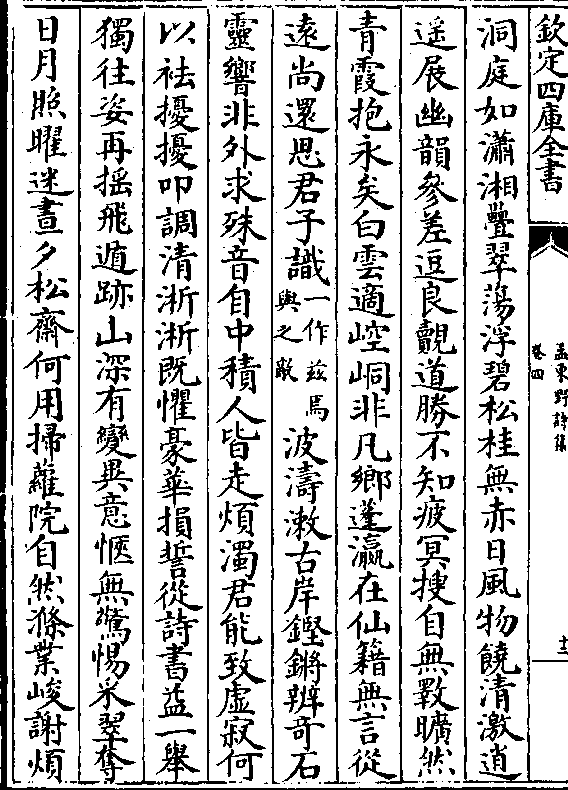 欽定四庫全書
孟東野詩集
卷四
十三
洞庭如瀟湘疊翠蕩浮碧松桂無赤日風物饒清激逍
遥展幽韻參差逗良覿道勝不知疲冥搜自無斁曠然
青霞抱永矣白雲適崆峒非凡鄉蓬瀛在仙籍無言從
遠尚還思君子識一作兹焉與之敵波濤漱古岸鏗鏘辨奇石
靈響非外求殊音自中積人皆走煩濁君能致虛寂何
以祛擾擾叩調清淅淅既懼豪華損誓從詩書益一舉
獨往姿再揺飛遁跡山深有變異意愜無驚惕采翠奪
日月照曜迷晝夕松齋何用掃蘿院自然滌業峻謝煩